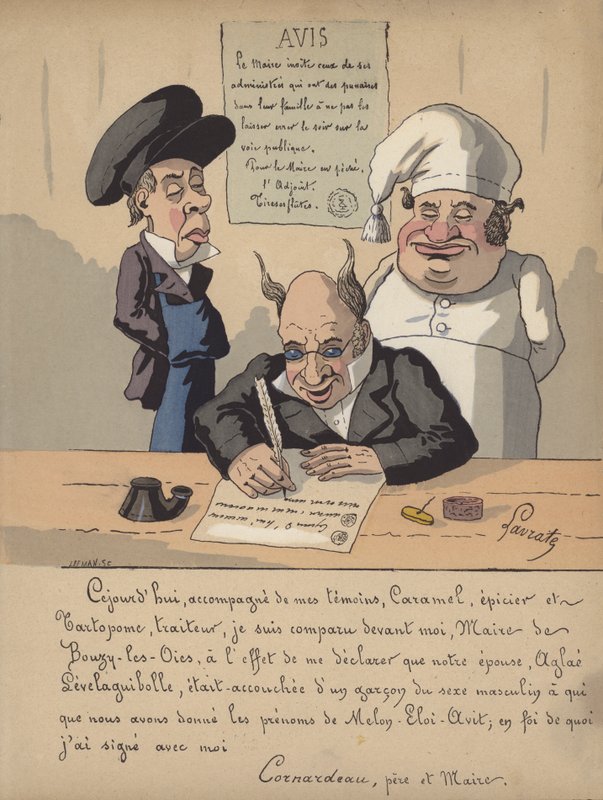 AVIS
Le Maire invite ceux de ses
administrés qui ont des punaises
dans leur famille à ne pas les
laisser errer le soir sur la
voie publique.
Pour le Maire en pêché,
l'Adjoint.
Tiresesflûtes.
Lavrate
LEEMAN. SC
Cejourd'hui, accompagné de mes témoins, Caramel, épicier et
Tartopome, traiteur, je suis comparu devant moi, Maire de
Bouzy-les-Oies, à l'effet de me déclarer que notre épouse, Aglaé
Lévelaguibolle, était accouchée d'un garçon du sexe masculin à qui
que nous avons donné les prénoms de Melon-Eloi-Avit; en foi de quoi
j'ai signé avec moi
Cornardeau, père et Maire.